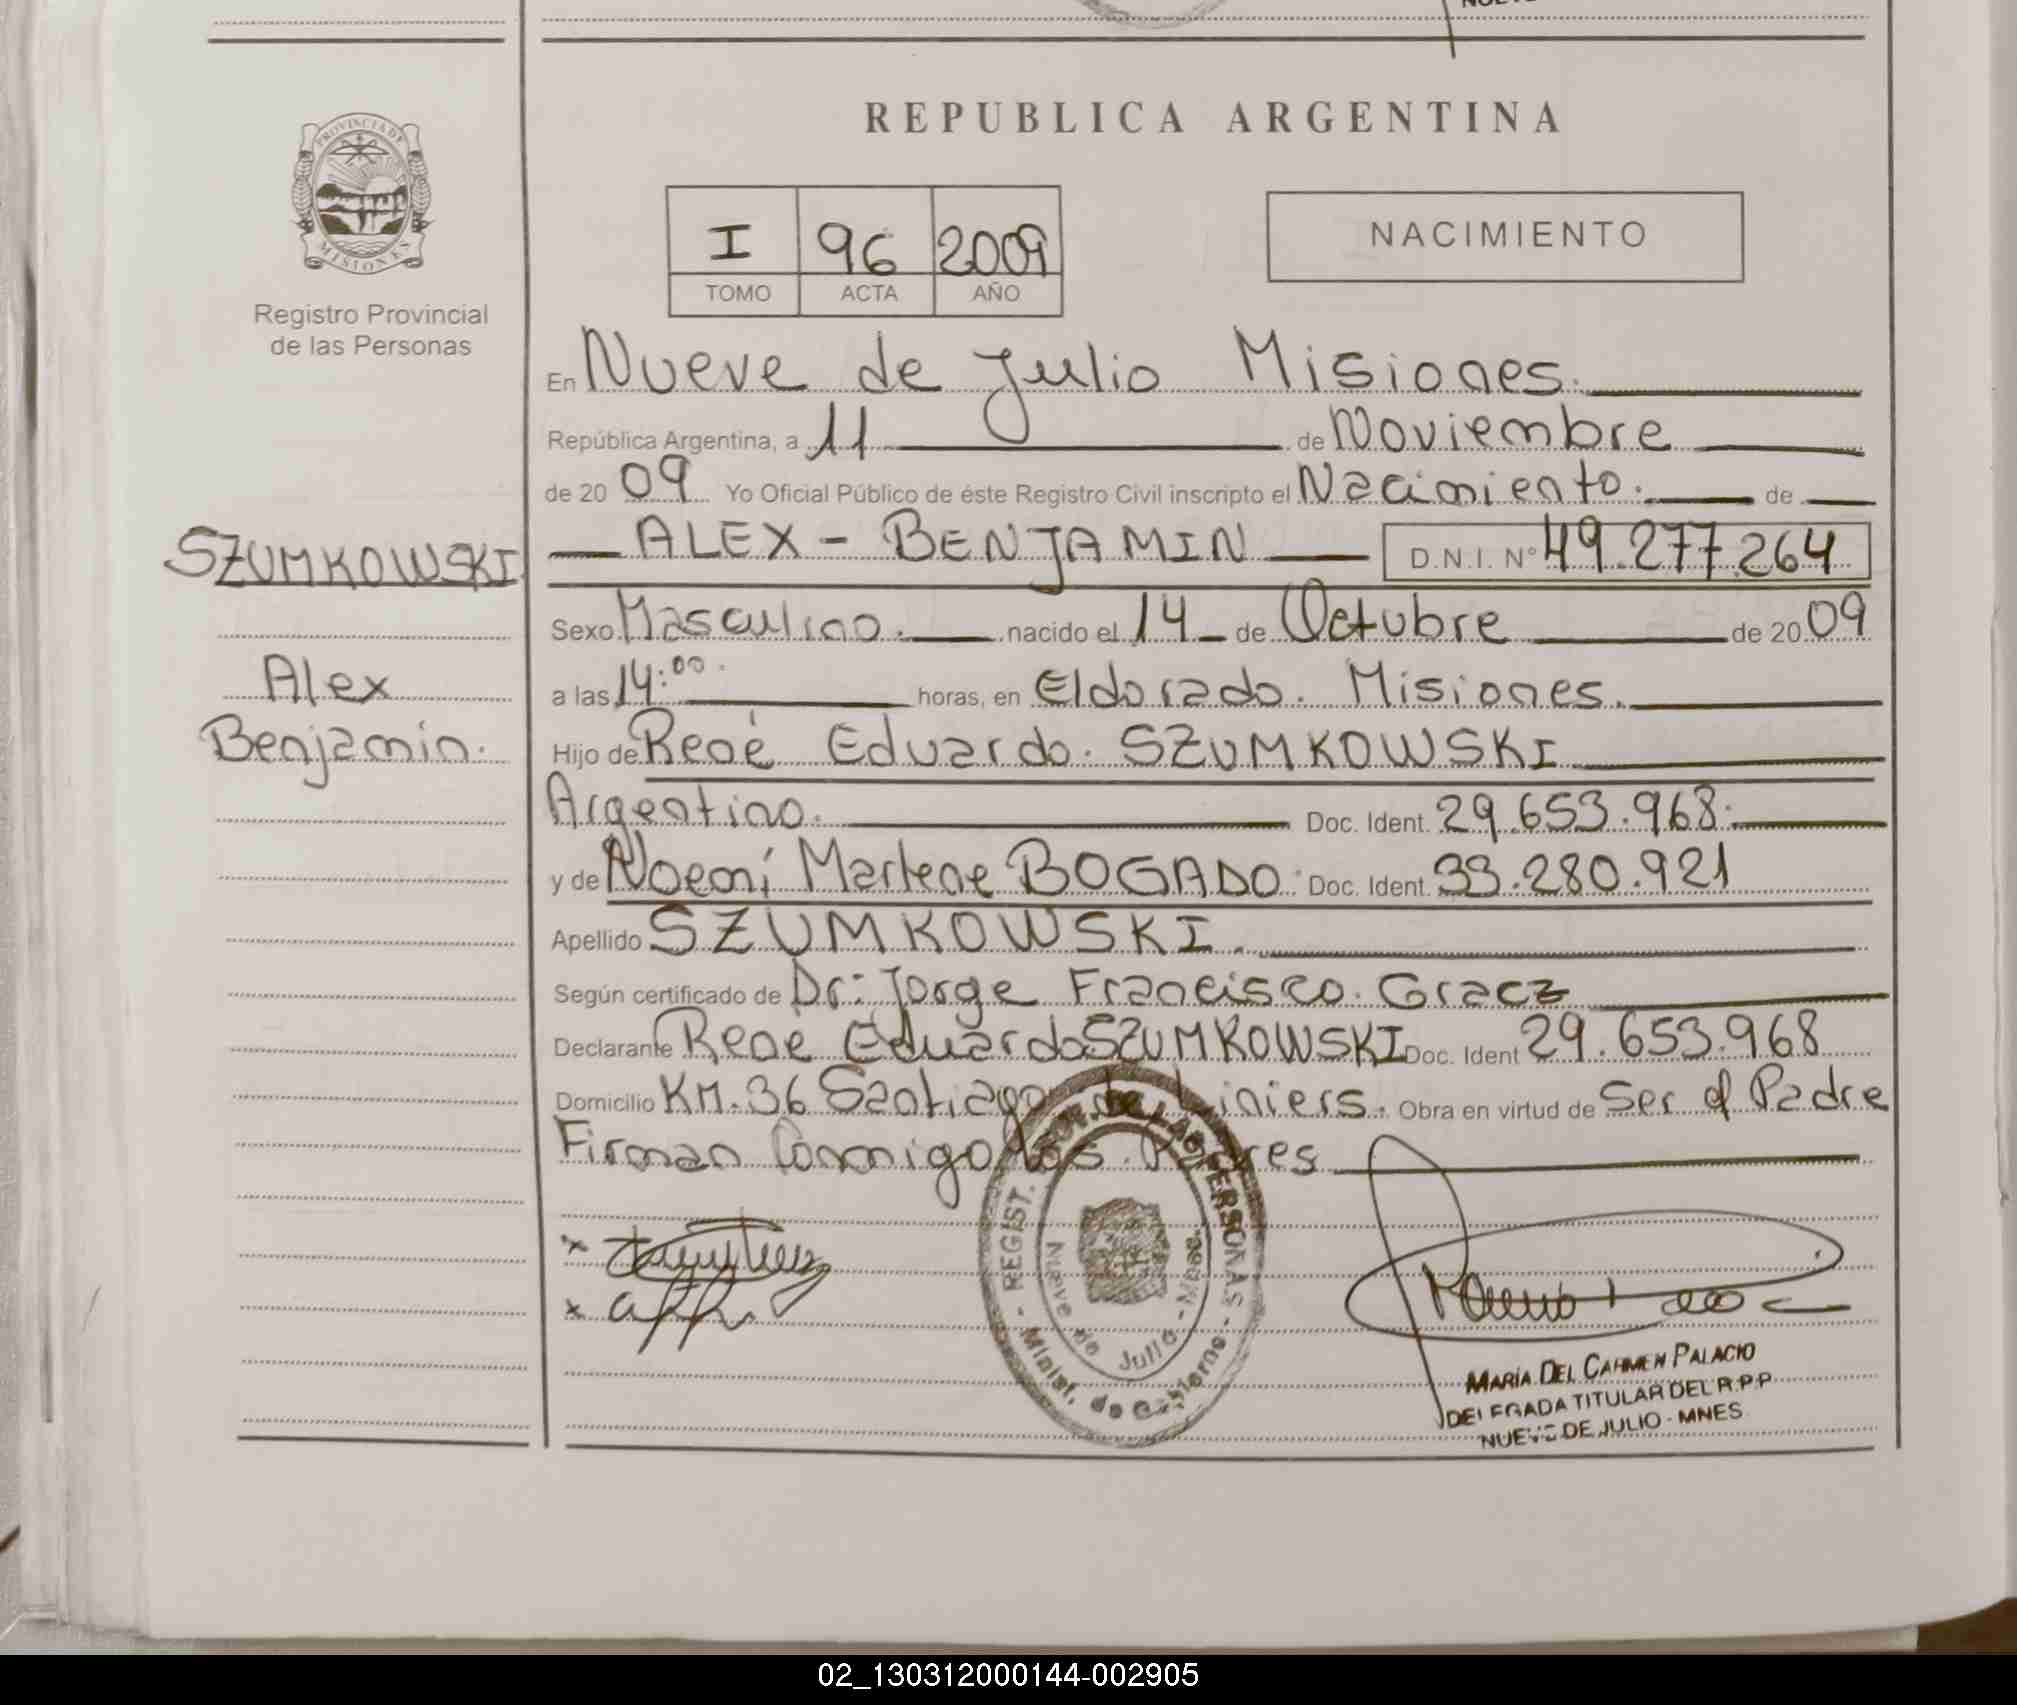 REPUBLICA ARGENTINA
PROVINCIA DE
MISIONES
Registro Provincial
de las Personas
I 96 2009
TOMO ACTA AÑO
NACIMIENTO
En Nueve de Julio Misiones.
República Argentina, a 11 de Noviembre
de 20 09 Yo Oficial Público de éste Registro Civil inscripto el Nacimiento. de
SZUMKOWSKI
Alex
Benjamin.
ALEX - BENJAMIN D.N.I. Nº 49.277.264
Sexo Masculino. nacido el 14 de Octubre de 20 09
a las 14:00. horas, en Eldorado. Misiones.
Hijo de René Eduardo. SZUMKOWSKI
Argentino. Doc. Ident. 29.653.968.
y de Noemí Marlene BOGADO. Doc. Ident. 33.280.921
Apellido SZUMKOWSKI.
Según certificado de Dr: Jorge Francisco. Gracz
Declarante Rene Eduardo SZUMKOWSKI Doc. Ident 29.653.968
Domicilio KM.36 Santiago de Liniers. Obra en virtud de Ser el Padre
Firman Conmigo los Padres
- REGIST. PROV. DE LAS PERSONAS -
Minist. de Gobierno
Nueve de Julio - Mnes.
MARÍA DEL CARMEN PALACIO
DELEGADA TITULAR DEL R.P.P
NUEVE DE JULIO - MNES
02_130312000144-002905